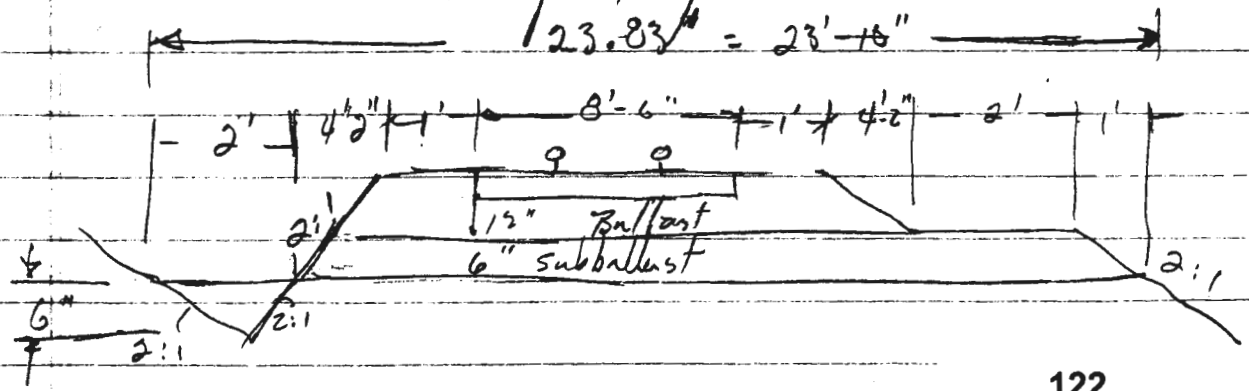 23.83' = 23'-10"
2' 4'2" 1' 8'-6" 1' 4'-2" 2' 1'
2:1 12" Ballast
6" subballast 2:1
6" 2:1 2:1
122